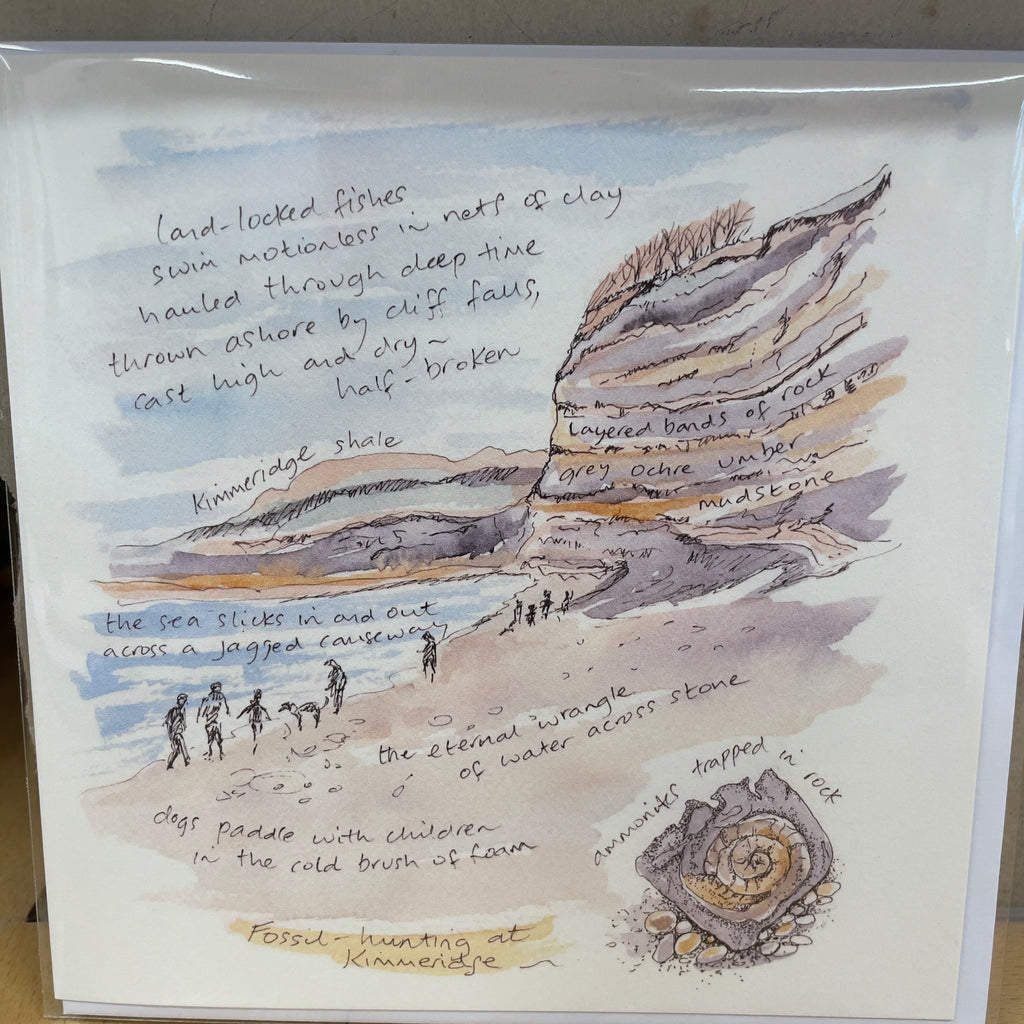 land-locked fishes
swim motionless in nets of clay
hauled through deep time
thrown ashore by cliff falls,
cast high and dry ~
half-broken
Kimmeridge shale
layered bands of rock
grey ochre umber
mudstone
the sea slicks in and out
across a jagged causeway
the eternal wrangle
of water across stone
dogs paddle with children
in the cold brush of foam
ammonites trapped in rock
Fossil-hunting at
Kimmeridge ~